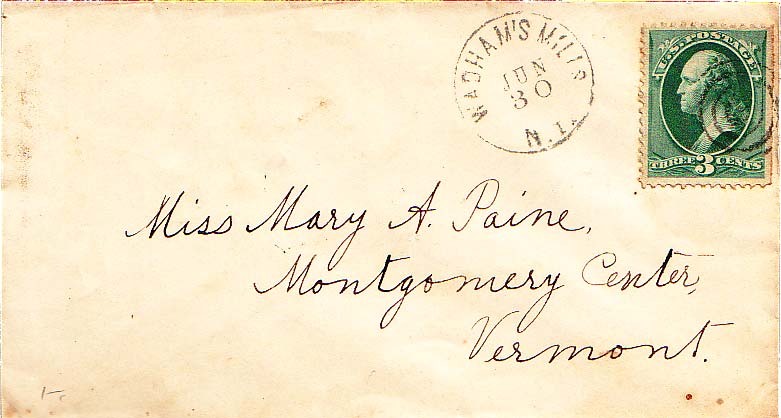 WADHAM'S MILLS
JUN
30
N.Y.
U.S. POSTAGE
THREE 3 CENTS
Miss Mary A. Paine,
Montgomery Center,
Vermont.